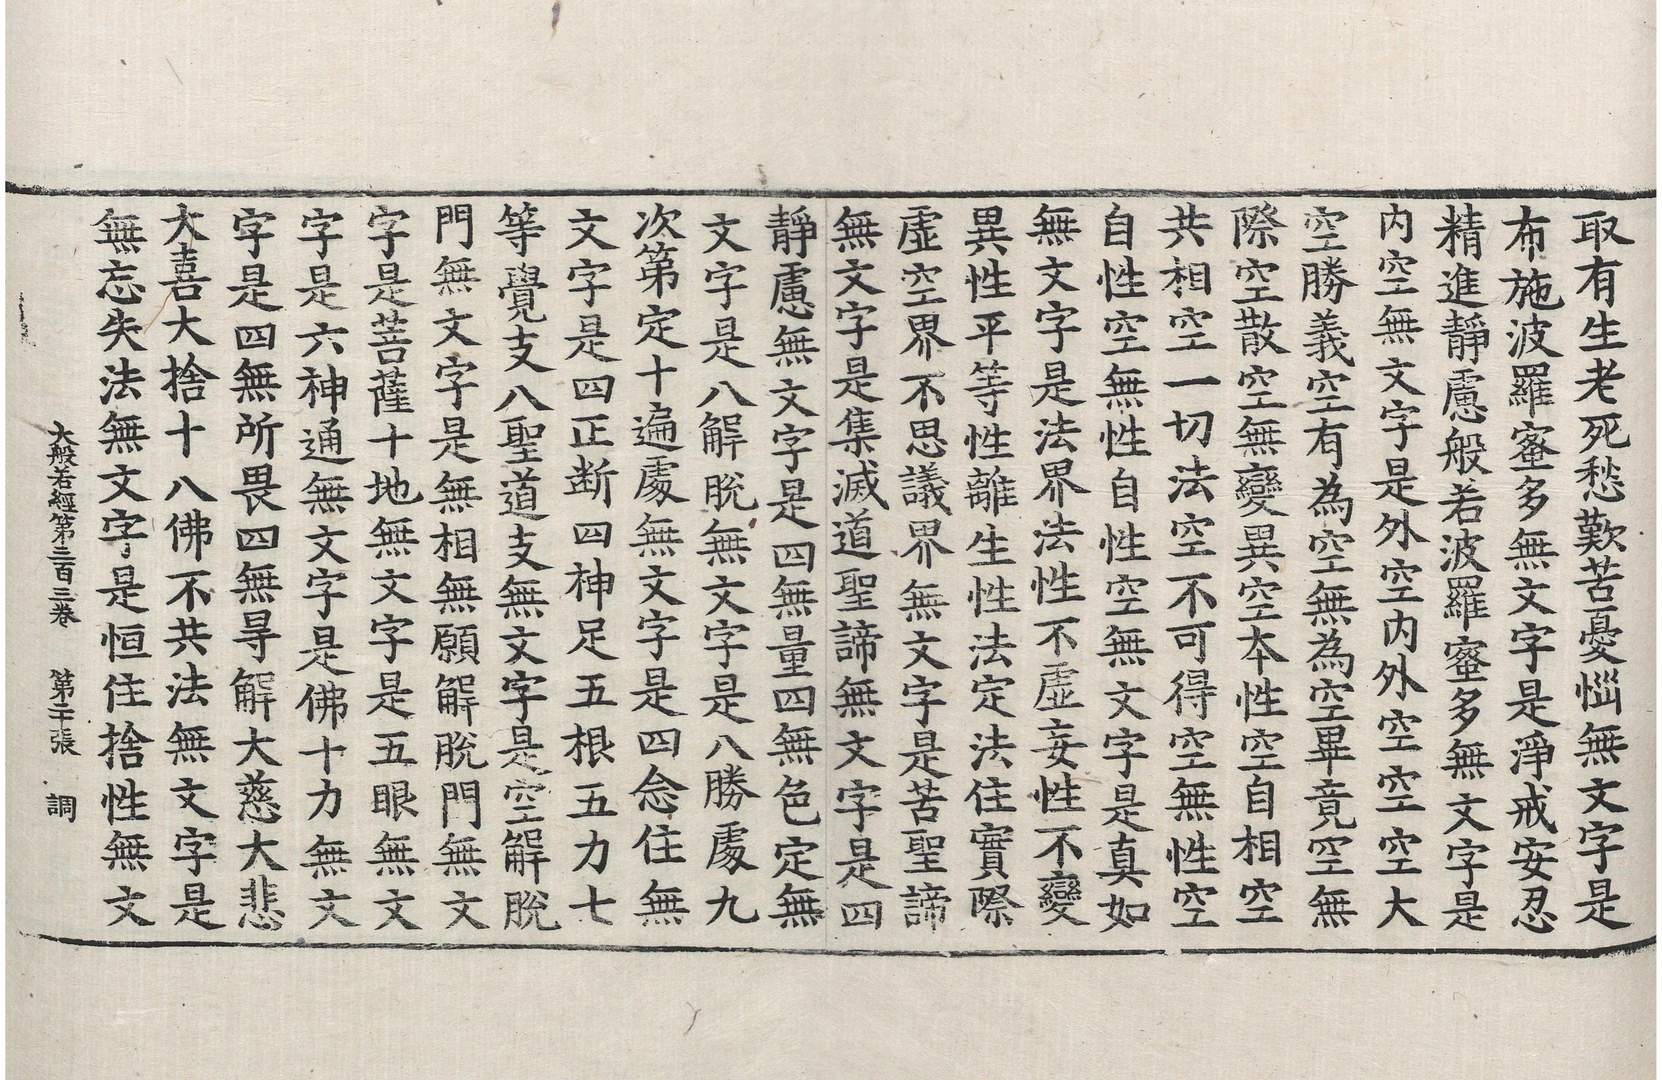 取有生老死愁歎苦憂惱無文字是
布施波羅蜜多無文字是淨戒安忍
精進靜慮般若波羅蜜多無文字是
内空無文字是外空内外空空空大
空勝義空有為空無為空畢竟空無
際空散空無變異空本性空自相空
共相空一切法空不可得空無性空
自性空無性自性空無文字是真如
無文字是法界法性不虛妄性不變
異性平等性離生性法定法住實際
虛空界不思議界無文字是苦聖諦
無文字是集滅道聖諦無文字是四
靜慮無文字是四無量四無色定無
文字是八解脫無文字是八勝處九
次第定十遍處無文字是四念住無
文字是四正断四神足五根五力七
等覺支八聖道支無文字是空解脫
門無文字是無相無願解脫門無文
字是菩薩十地無文字是五眼無文
字是六神通無文字是佛十力無文
字是四無所畏四無㝵解大慈大悲
大喜大捨十八佛不共法無文字是
無忘失法無文字是恒住捨性無文
大般若經第三百三卷 第二十張 調